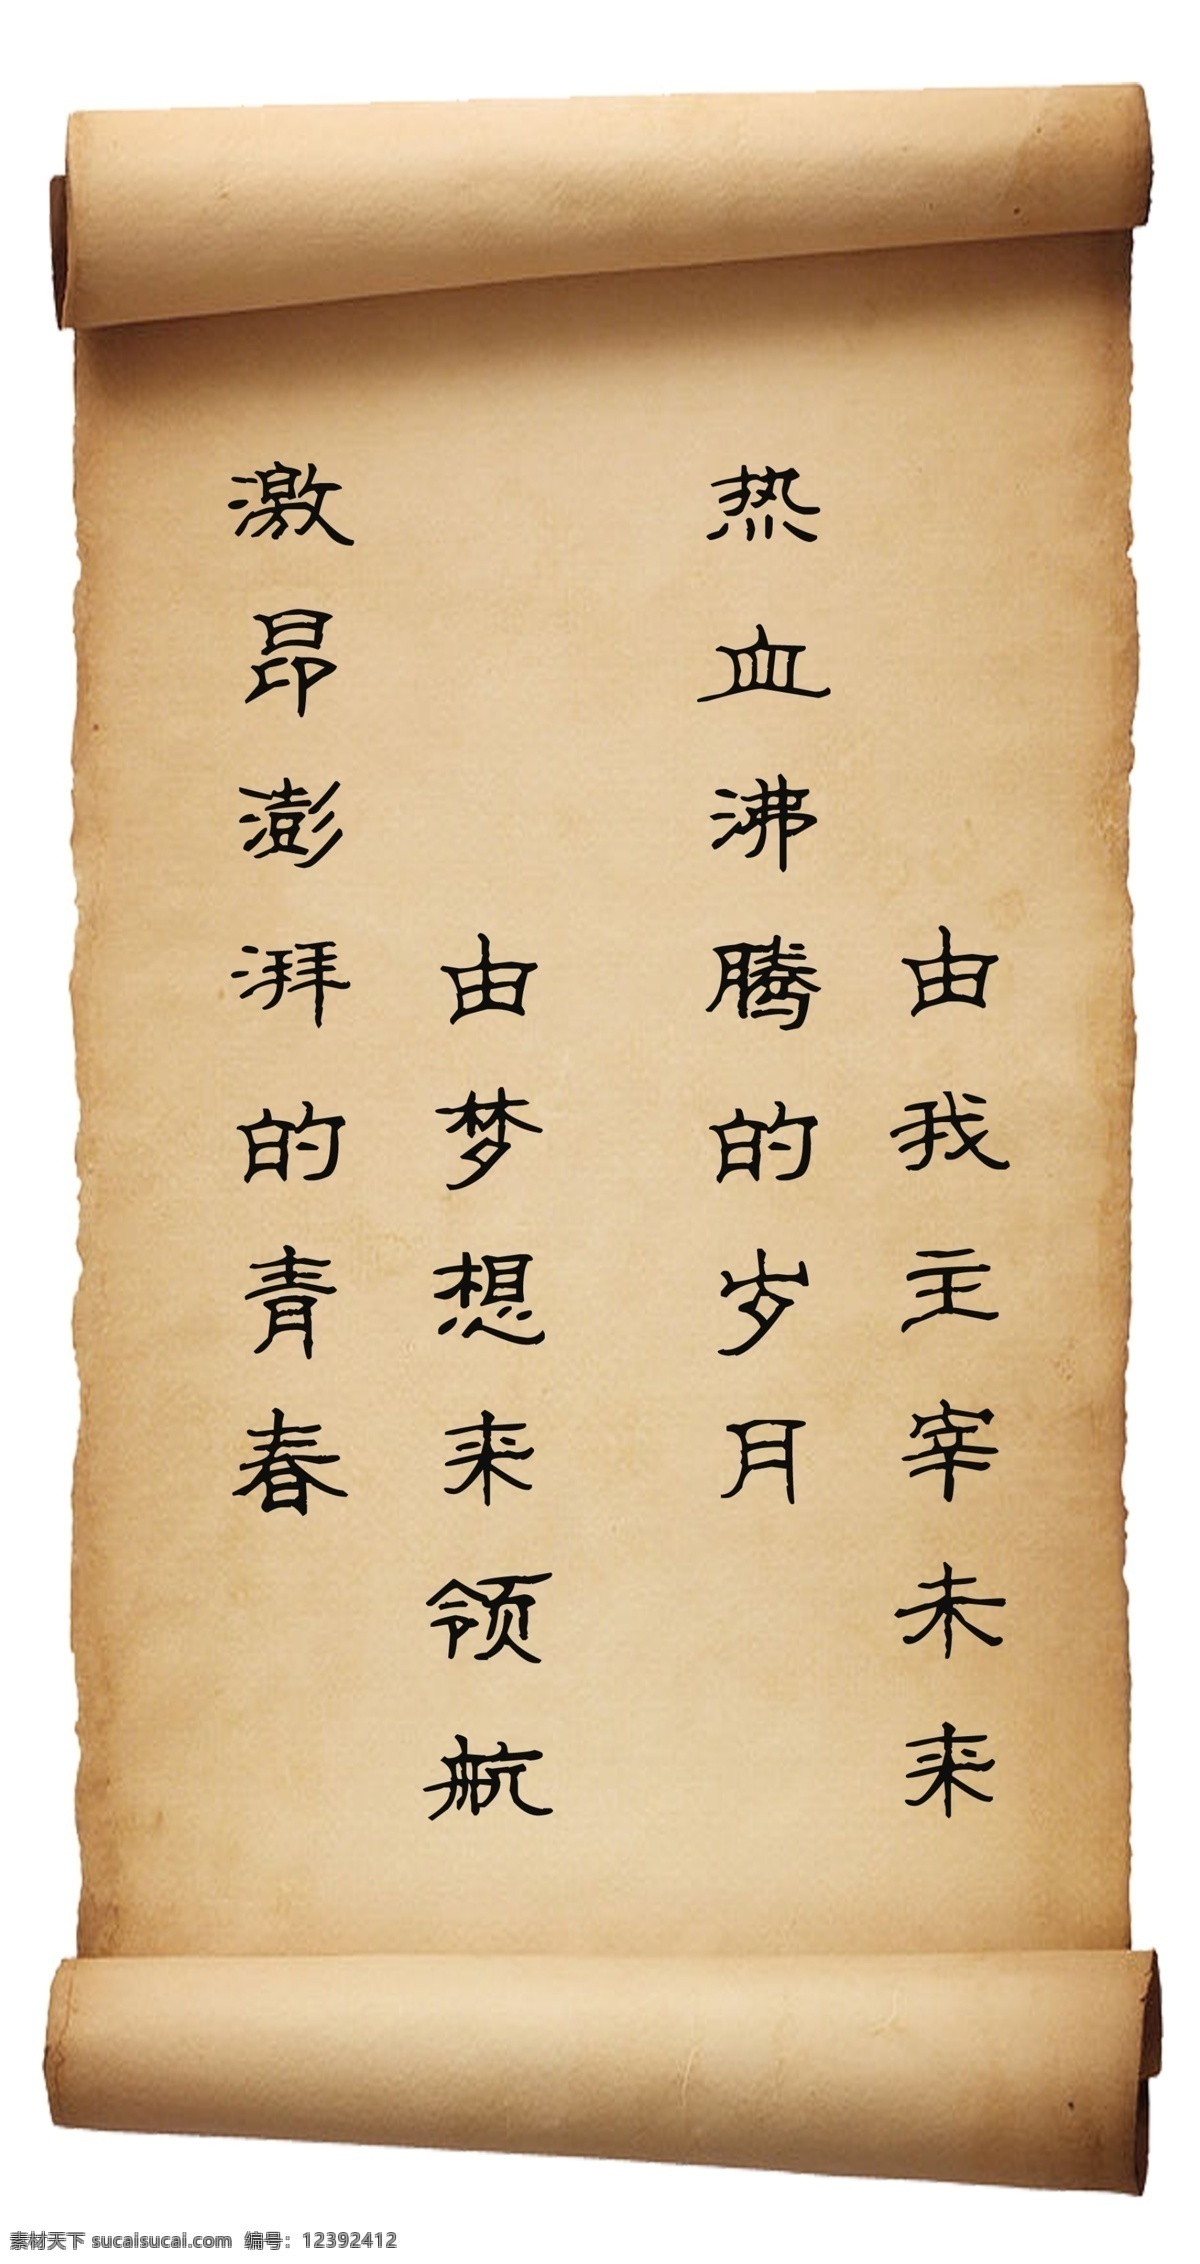 激昂澎湃的青春
由梦想来领航
热血沸腾的岁月
由我主宰未来
素材天下 sucaisucai.com 编号：12392412